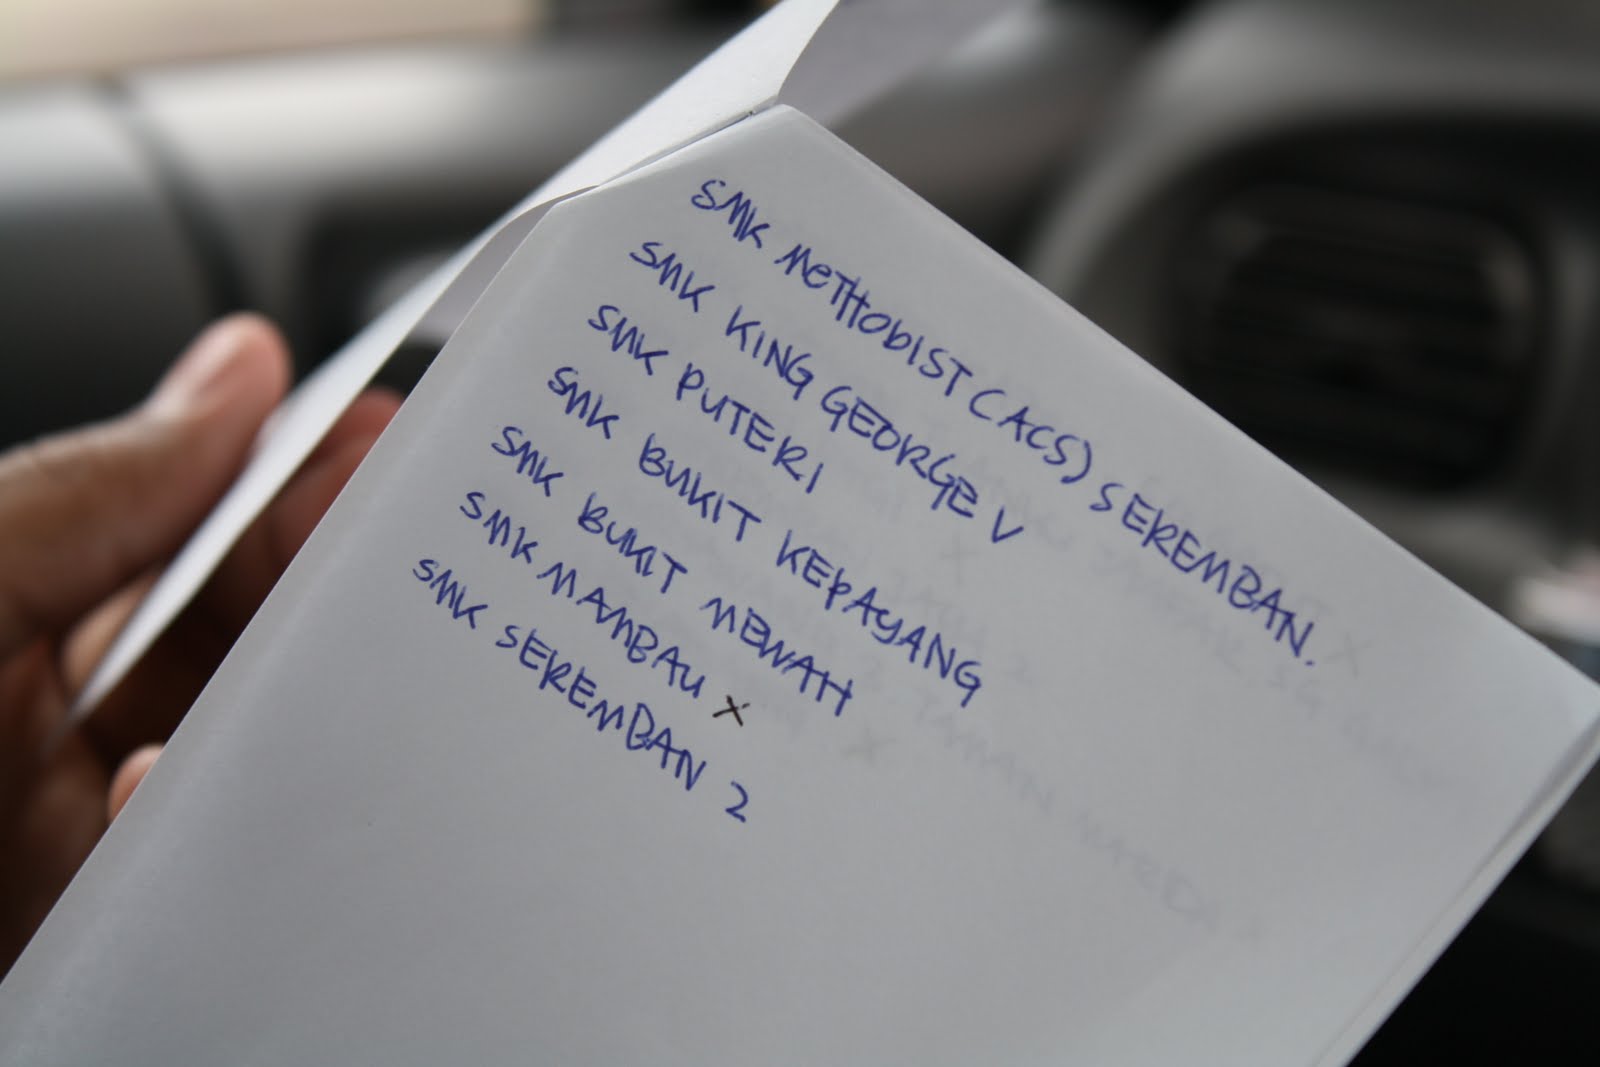 SMK METHODIST (ACS) SEREMBAN.
SMK KING GEORGE V
SMK PUTERI
SMK BUKIT KEPAYANG
SMK BUKIT MEWAH
SMK MAMBAU x
SMK SEREMBAN 2